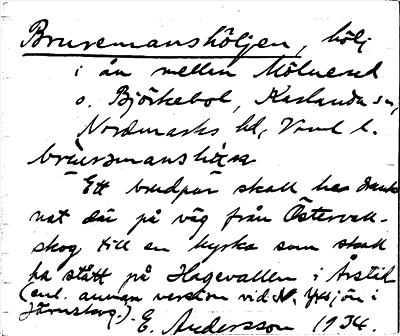 Bruremanshöljen, hölj
i ån mellan Mölnerud
o. Björkebol, Karlanda sn,
Nordmarks hd, Vrml l.
Ett brudpar skall ha drunk-
nat där på väg från Östervall-
skog till en kyrka som skall
ha stått på Hagevallen i Årstil
(enl. annan version vid N. Ytsjön i
Järnskog.). E. Andersson 1934